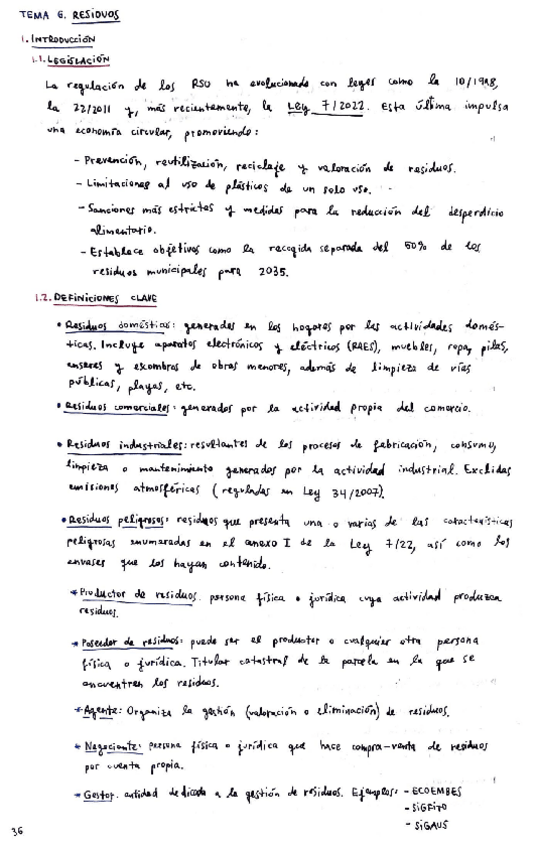 TEMA 6. RESIDUOS
1. INTRODUCCIÓN
1.1. LEGISLACIÓN
La regulación de los RSU ha evolucionado con leyes como la 10/1998,
la 22/2011 y, más recientemente, la Ley 7/2022. Esta última impulsa
una economía circular, promoviendo:
- Prevención, reutilización, reciclaje y valoración de residuos.
- Limitaciones al uso de plásticos de un solo uso.
- Sanciones más estrictas y medidas para la reducción del desperdicio
alimentario.
- Establece objetivos como la recogida separada del 50% de los
residuos municipales para 2035.
1.2. DEFINICIONES CLAVE
• Residuos domésticos: generados en los hogares por las actividades domés-
ticas. Incluye aparatos electrónicos y eléctricos (RAES), muebles, ropa, pilas,
enseres y escombros de obras menores, además de limpieza de vías
públicas, playas, etc.
• Residuos comerciales: generados por la actividad propia del comercio.
• Residuos industriales: resultantes de los procesos de fabricación, consumo,
limpieza o mantenimiento generados por la actividad industrial. Excluidas
emisiones atmosféricas (reguladas en Ley 34/2007).
• Residuos peligrosos: residuos que presenta una o varias de las características
peligrosas enumeradas en el anexo I de la Ley 7/22, así como los
envases que los hayan contenido.
* Productor de residuos. persona física o jurídica cuya actividad produzca
residuos.
* Poseedor de residuos: puede ser el productor o cualquier otra persona
física o jurídica. Titular catastral de la parcela en la que se
encuentren los residuos.
* Agente: Organiza la gestión (valoración o eliminación) de residuos.
* Negociante: persona física o jurídica que hace compra-venta de residuos
por cuenta propia.
* Gestor. entidad dedicada a la gestión de residuos. Ejemplos: - ECOEMBES
- SIGFITO
- SIGAUS
36